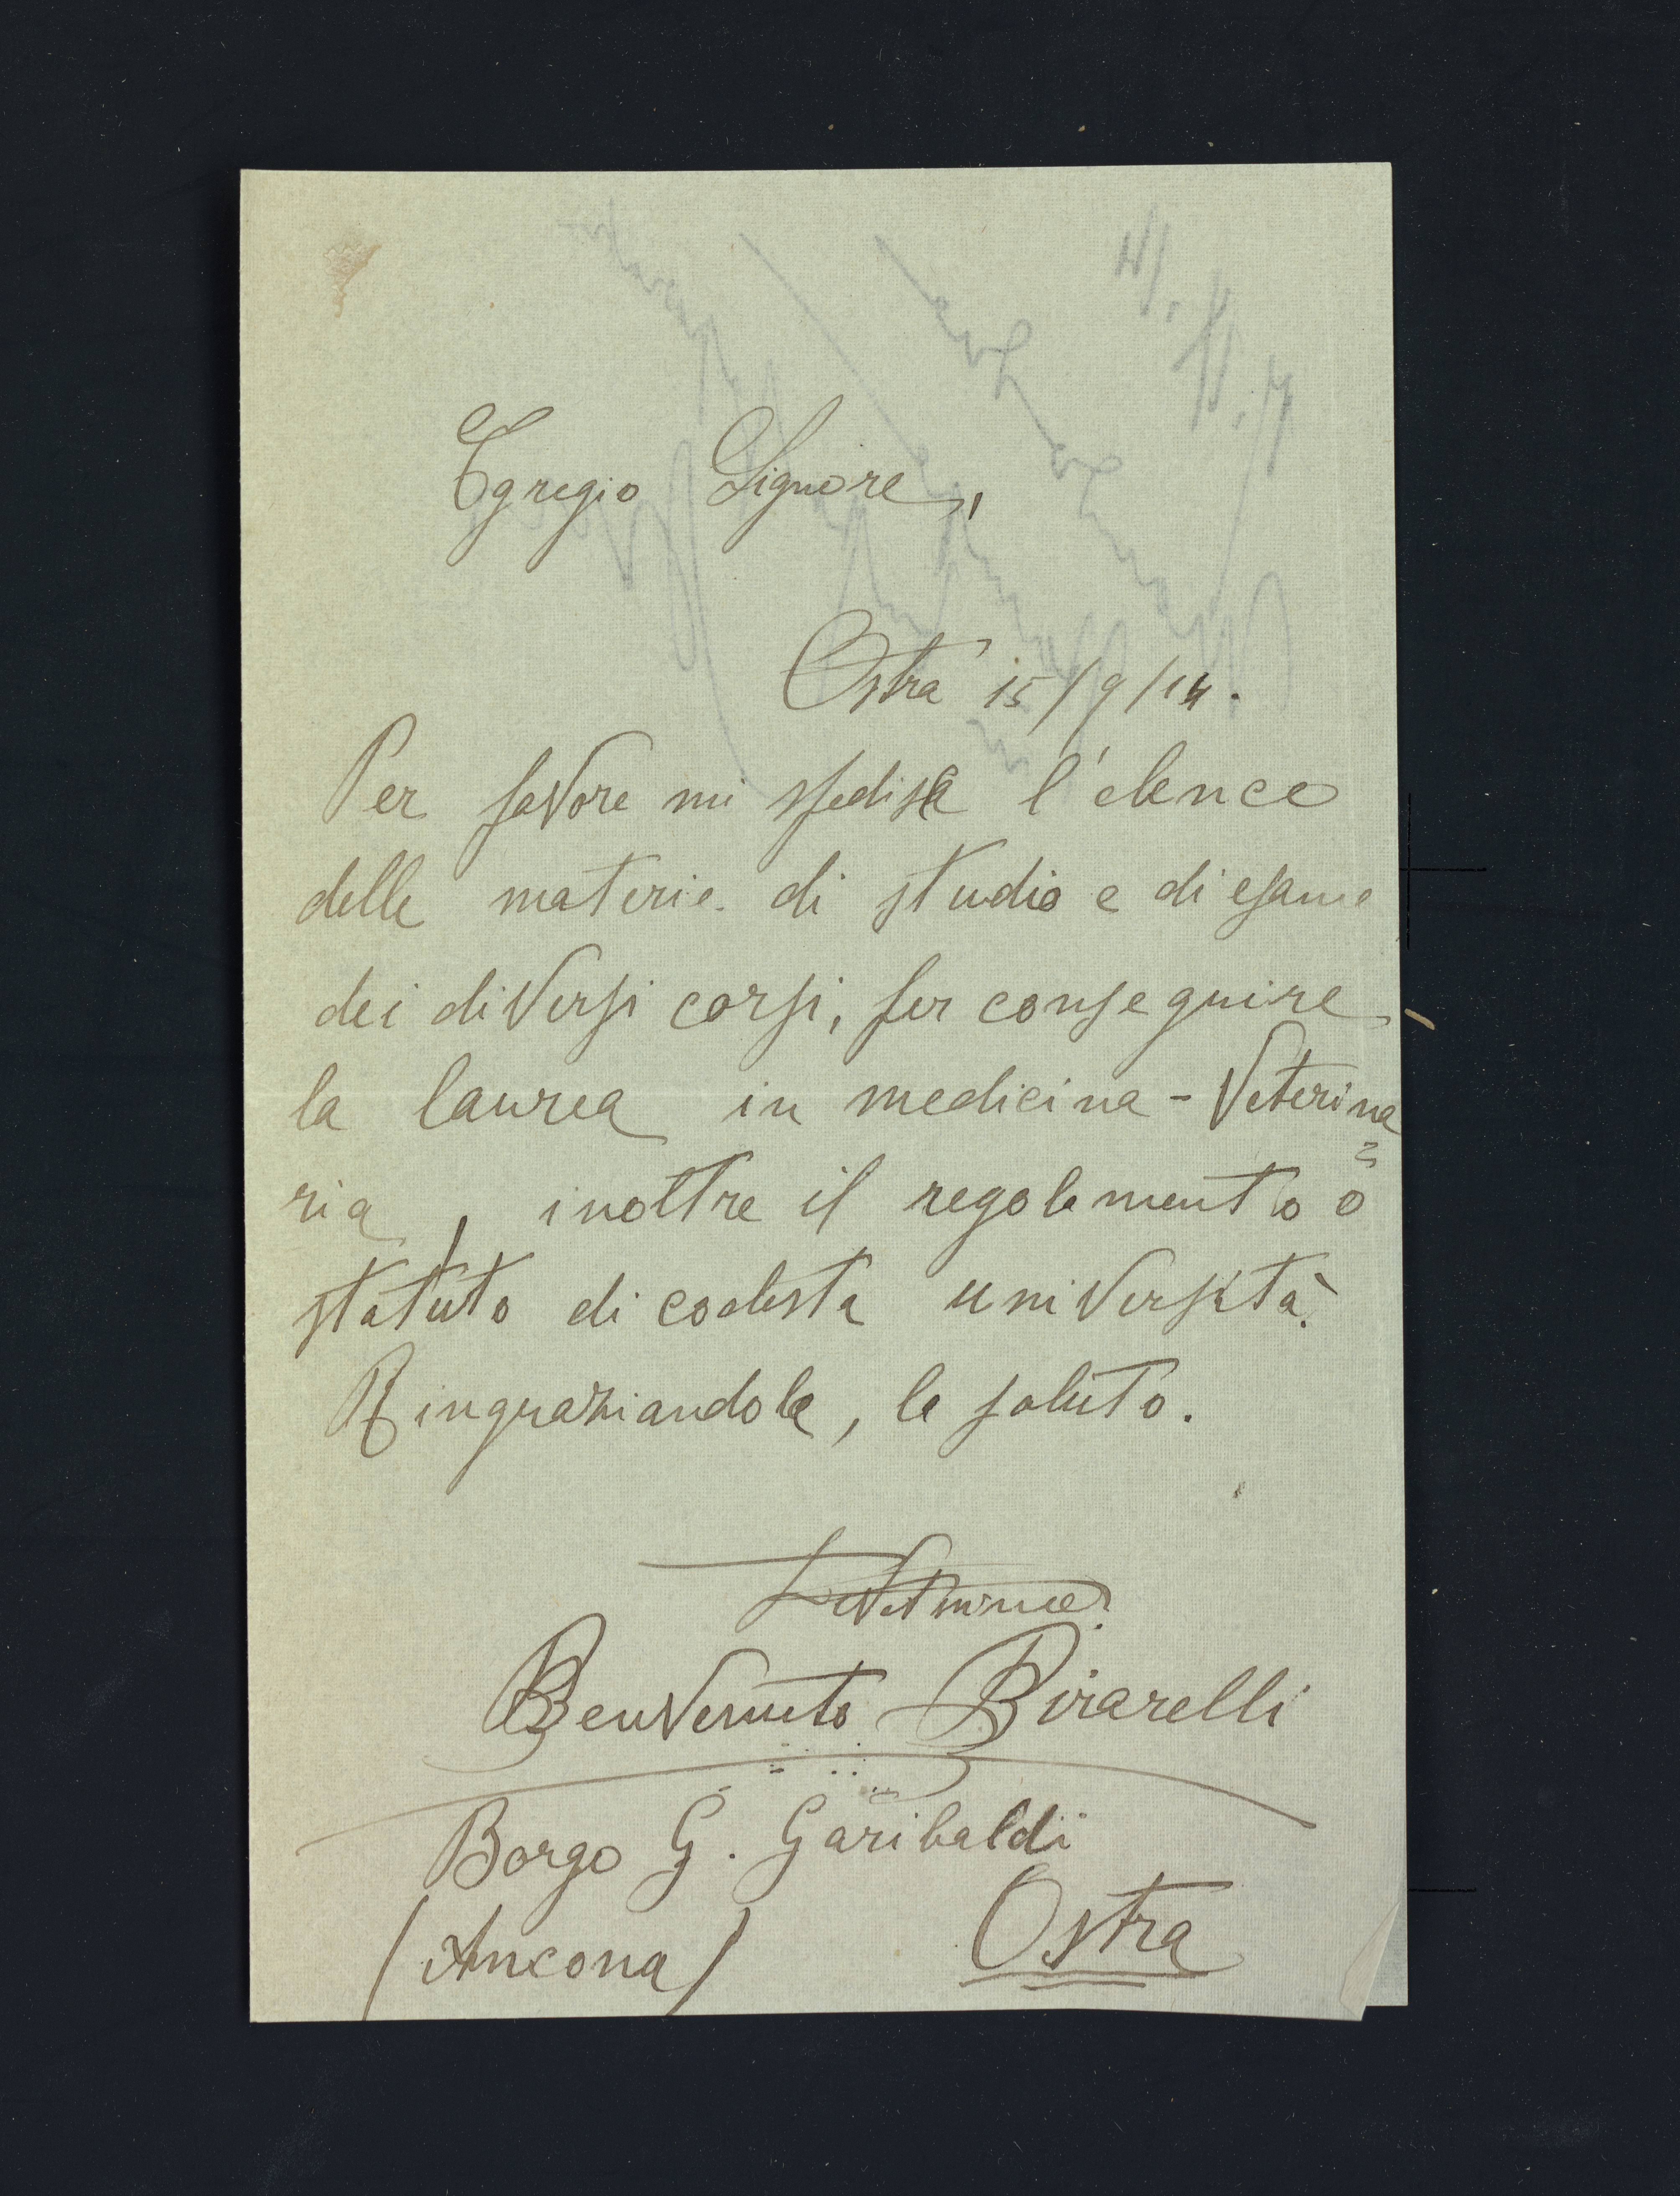 Egregio Signore,
Ostra 15/9/14.
Per favore mi spedisca l'elenco
delle materie di studio e di esame
dei diversi corsi, per conseguire
la laurea in medicina - Veterina
ria, inoltre il regolamento o
statuto di codesta università.
Ringraziandola, la saluto.
Devotissimo
Benvenuto Birarelli
Borgo G. Garibaldi
(Ancona) Ostra